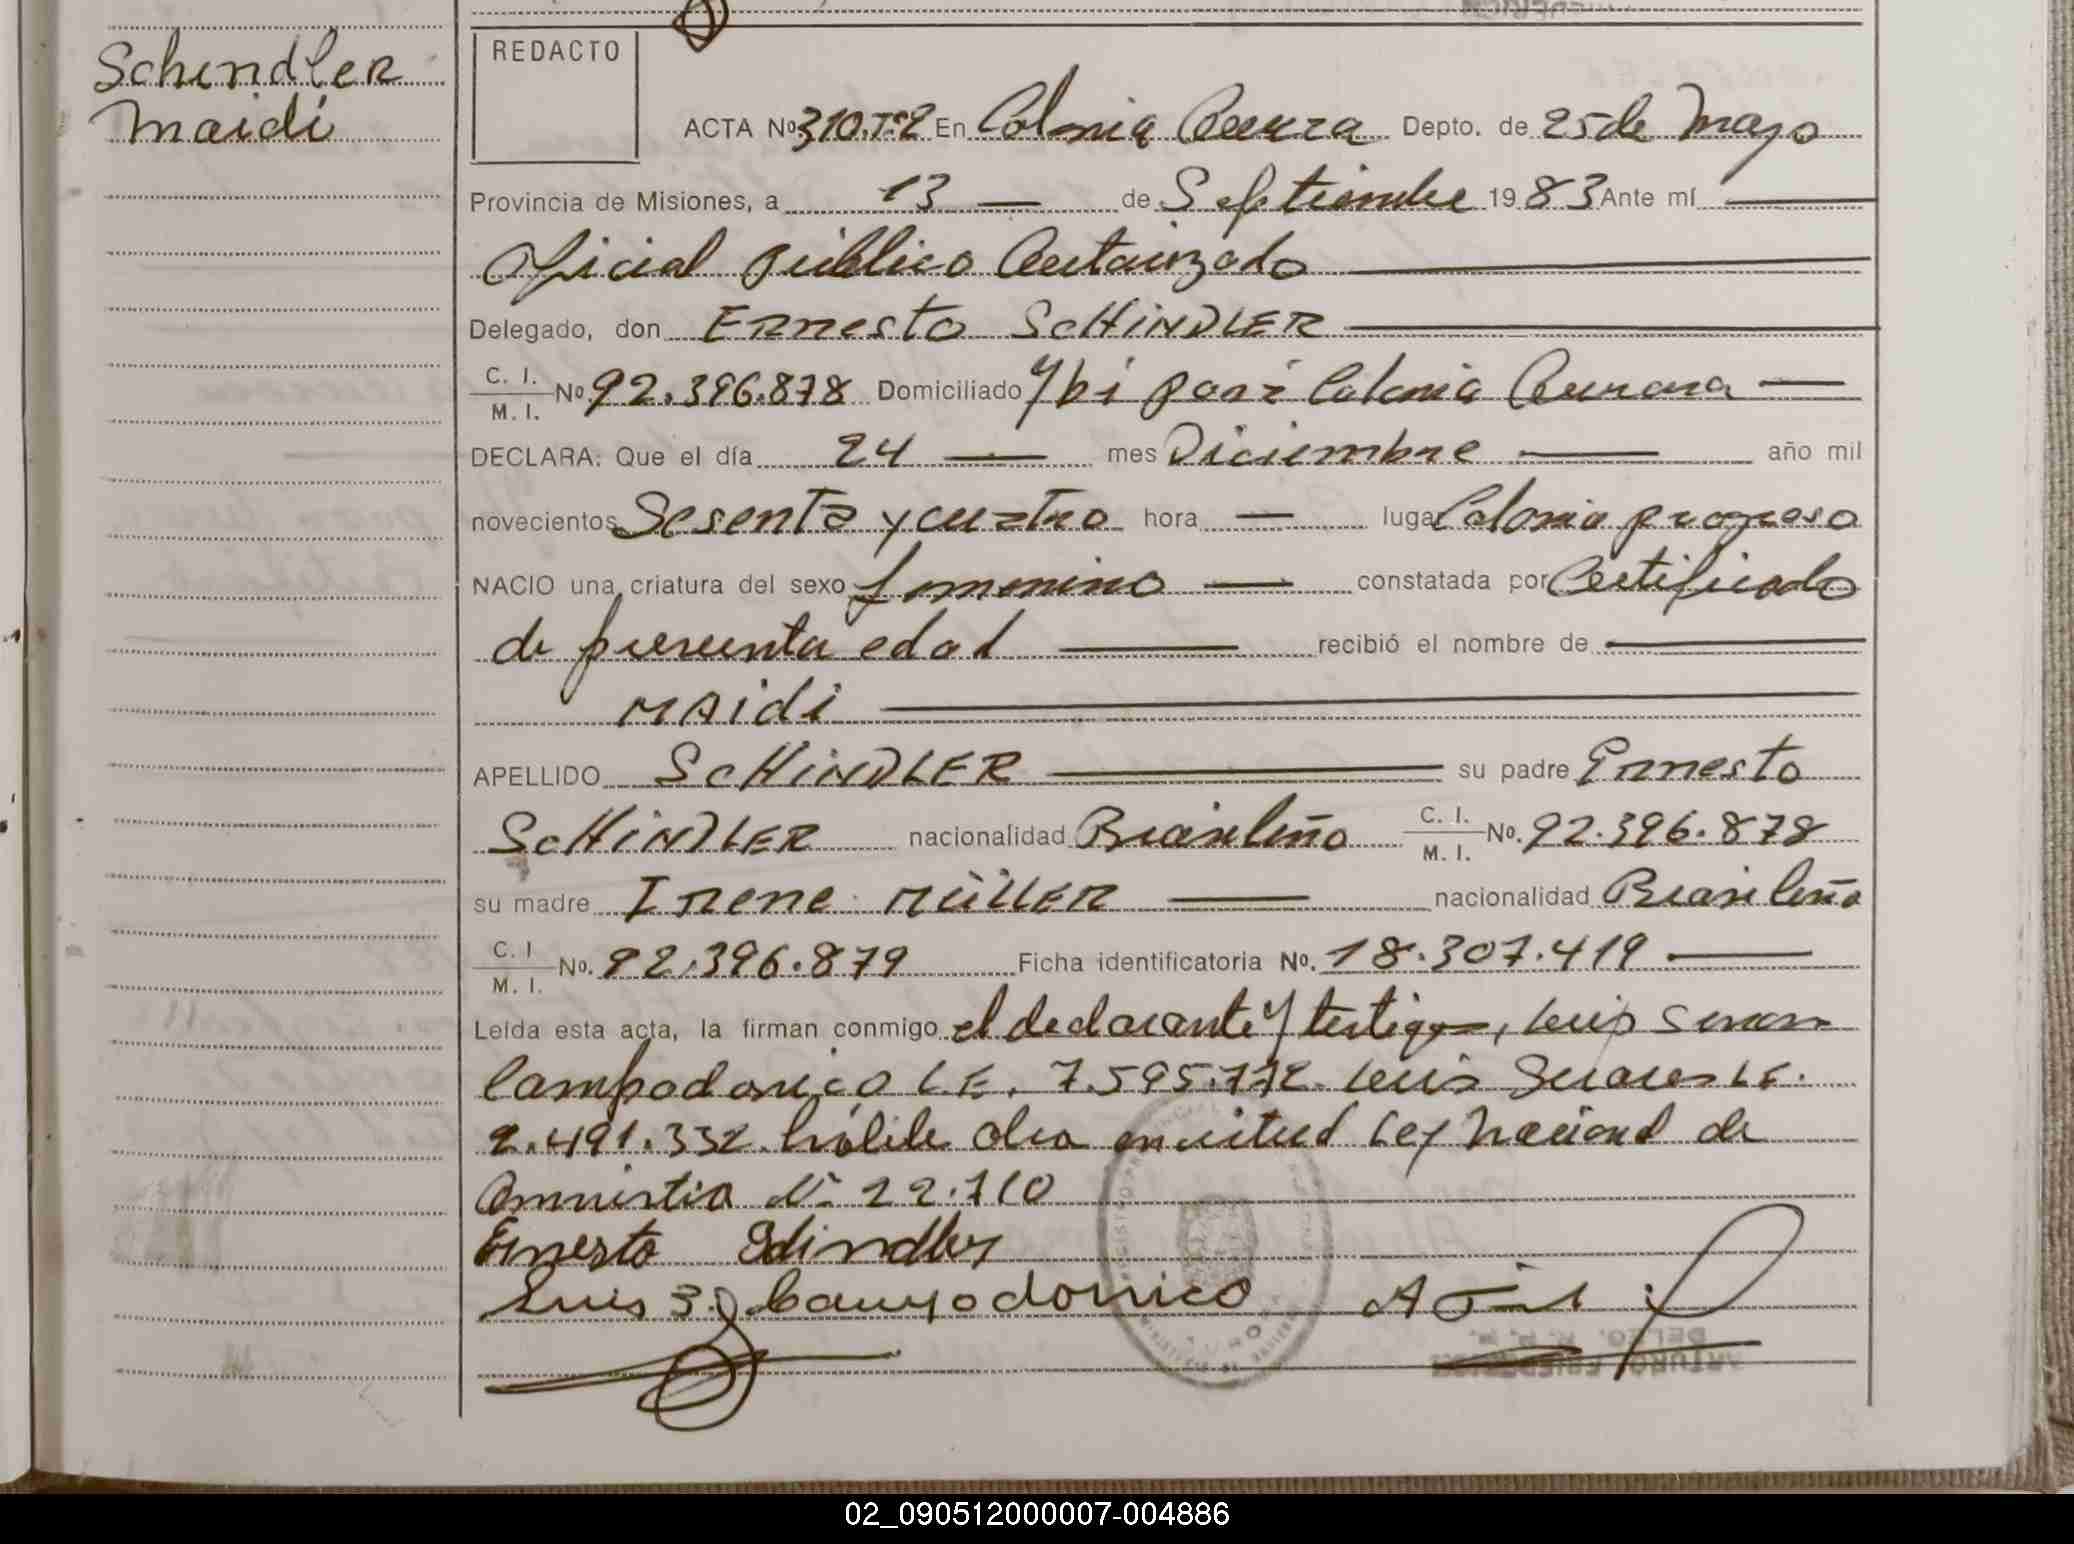 Schindler
Maidi
REDACTO
ACTA Nº 310.Tº2 En Colonia Aurora Depto. de 25 de Mayo
Provincia de Misiones, a 13 — de Septiembre 1983 Ante mí —
Oficial Público Autorizado —
Delegado, don Ernesto SCHINDLER —
C. I. / M. I. Nº 92.396.878 Domiciliado Ybi porá Colonia Aurora —
DECLARA: Que el día 24 — mes Diciembre — año mil
novecientos Sesenta y cuatro hora — lugar Colonia progreso
NACIO una criatura del sexo femenino — constatada por Certificado
de presunta edad — recibió el nombre de —
MAidi —
APELLIDO SCHINDLER — su padre Ernesto
SCHINDLER nacionalidad Brasileño C. I. / M. I. Nº. 92.396.878
su madre Irene MüLLER — nacionalidad Brasileña
C. I / M. I. Nº. 92.396.879 Ficha identificatoria Nº. 18.307.419 —
Leída esta acta, la firman conmigo el declarante y testigos, Luis
Campodonico L.E. 7.595.772 Luis Suares L.E.
2.491.332 hábiles Ley Nacional de
Amnistia Nº 22.710
Ernesto Schindler
Luis S. Campodonico
ARTURO
02_090512000007-004886